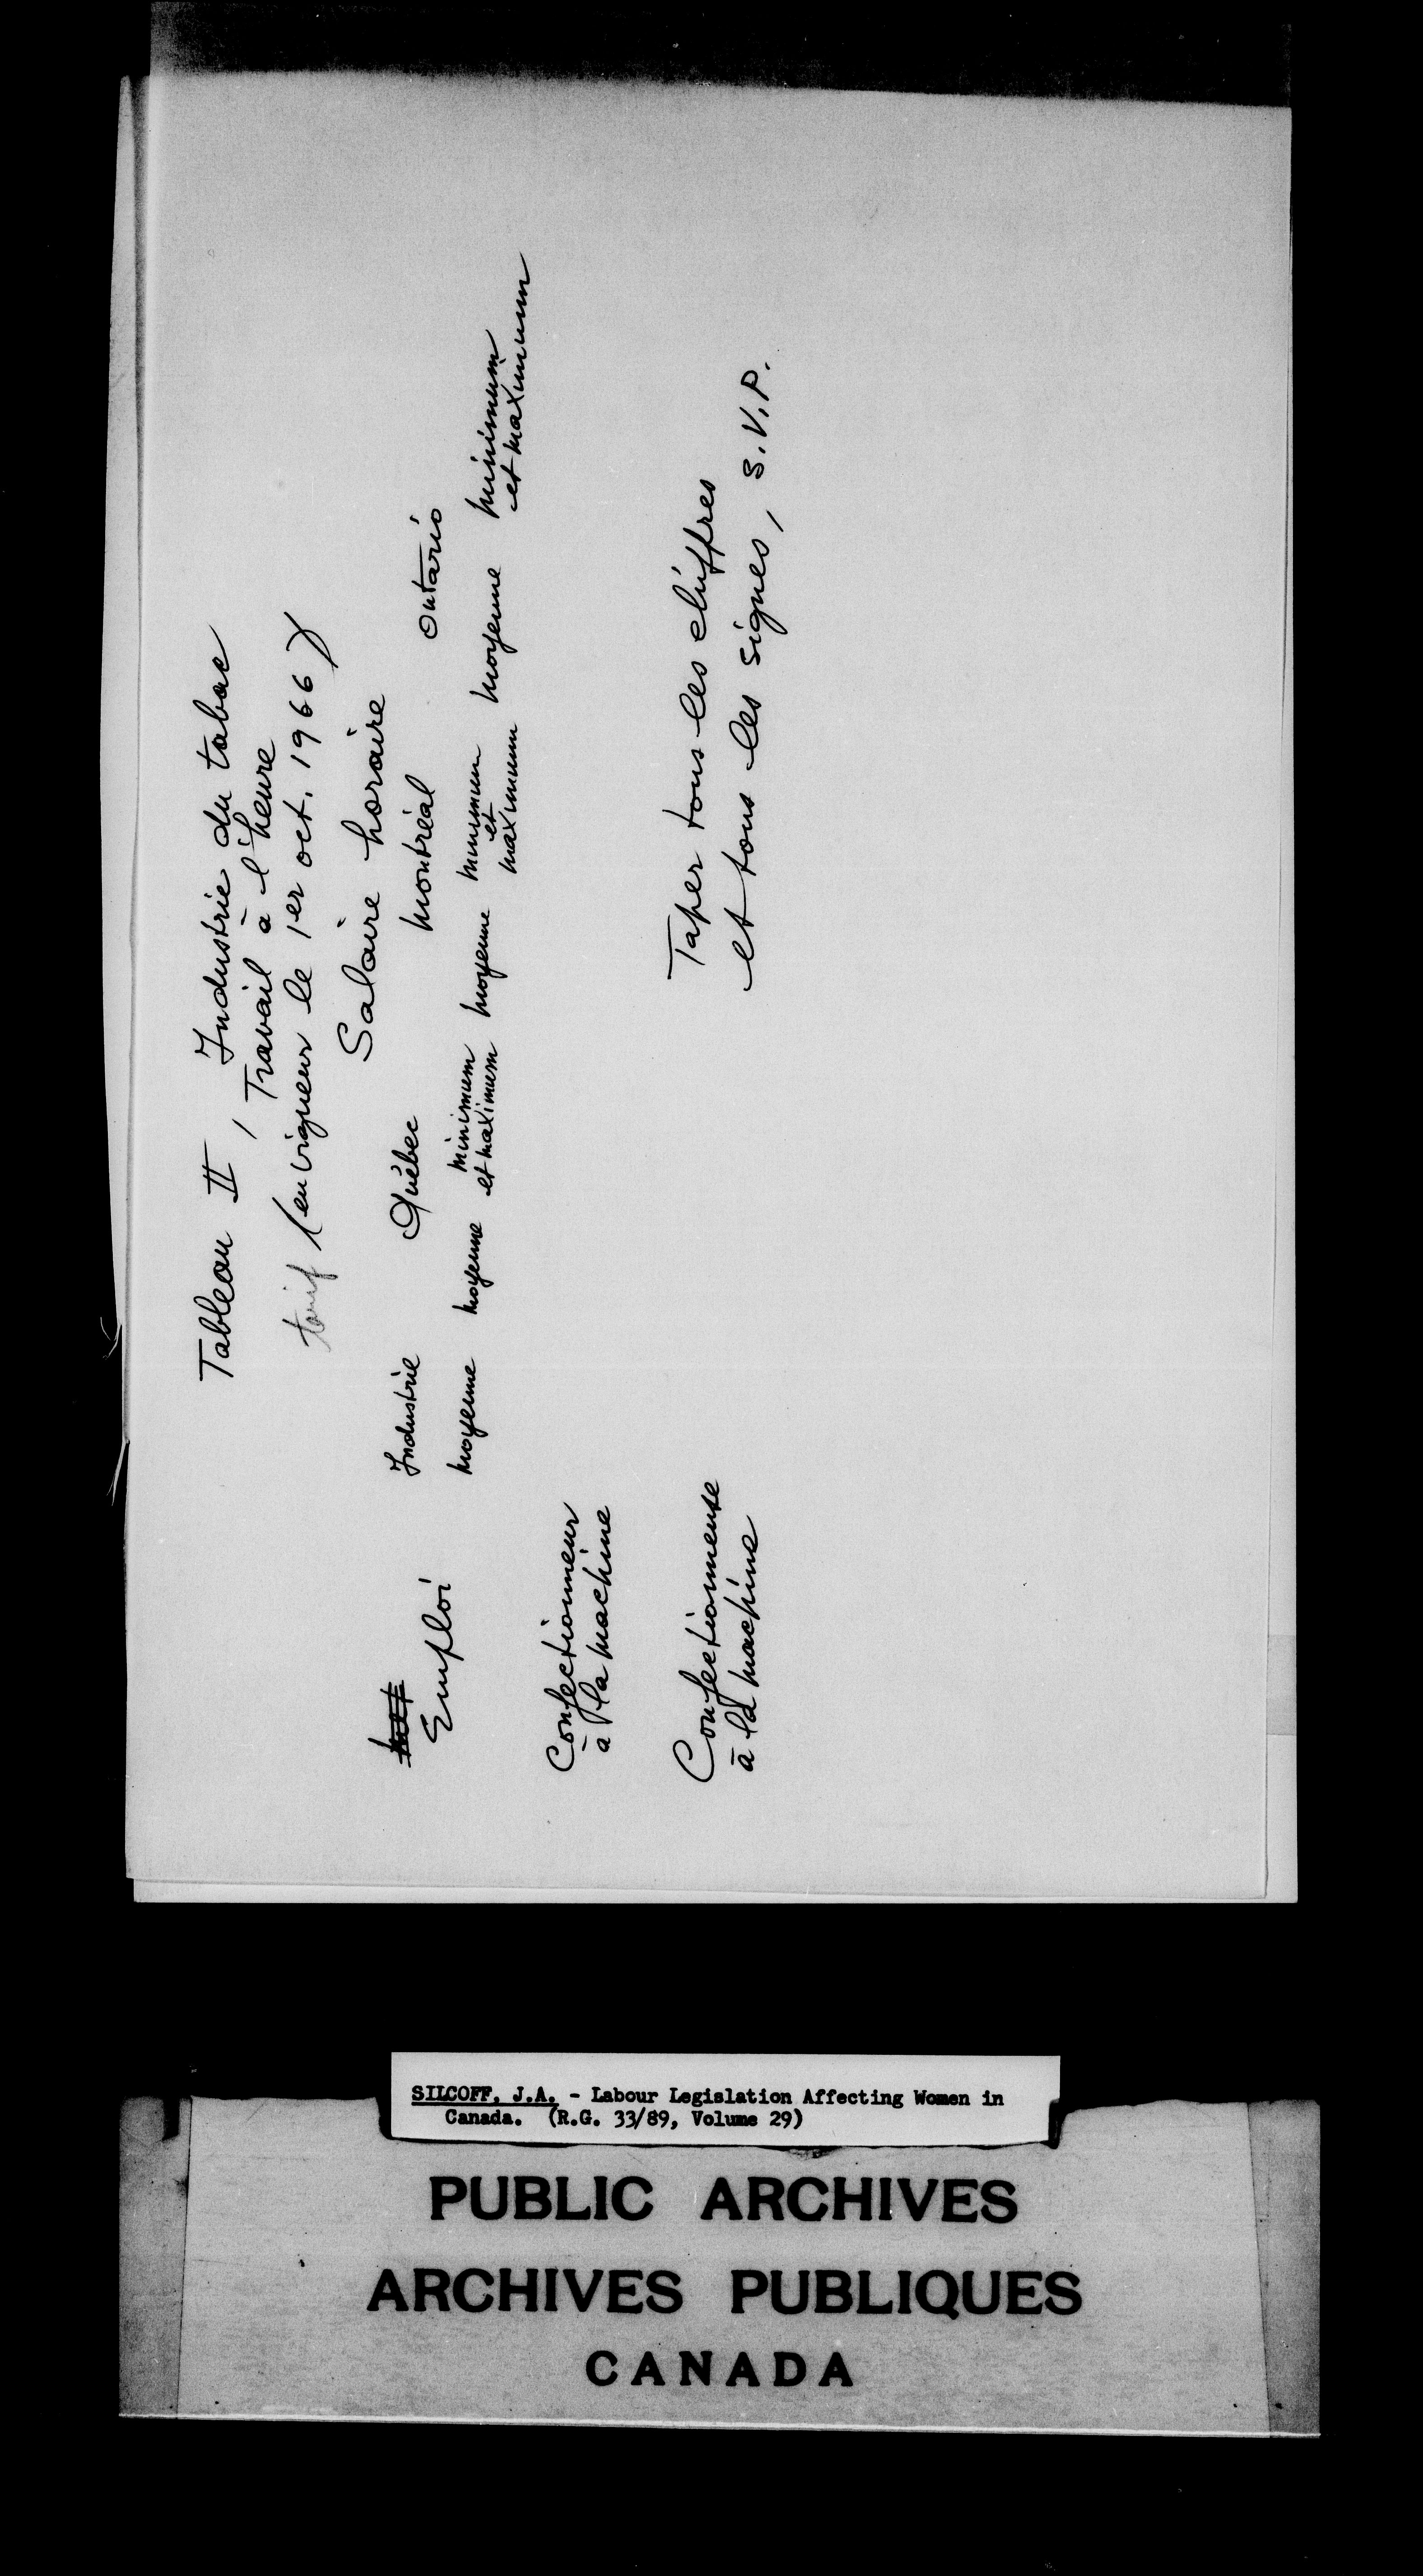 Tableau II, Industrie du tabac
Travail à l'heure
tarif (en vigueur le 1er oct. 1966)
Salaire horaire
Industrie Québec Montréal Ontario
Emploi
moyenne moyenne minimum et maximum moyenne minimum et maximum moyenne minimum et maximum
Confectionneur
à la machine
Confectionneuse
à la machine
Taper tous les chiffres
et tous les signes, S.V.P.
SILCOFF, J.A. - Labour Legislation Affecting Women in
Canada. (R.G. 33/89, Volume 29)
PUBLIC ARCHIVES
ARCHIVES PUBLIQUES
CANADA